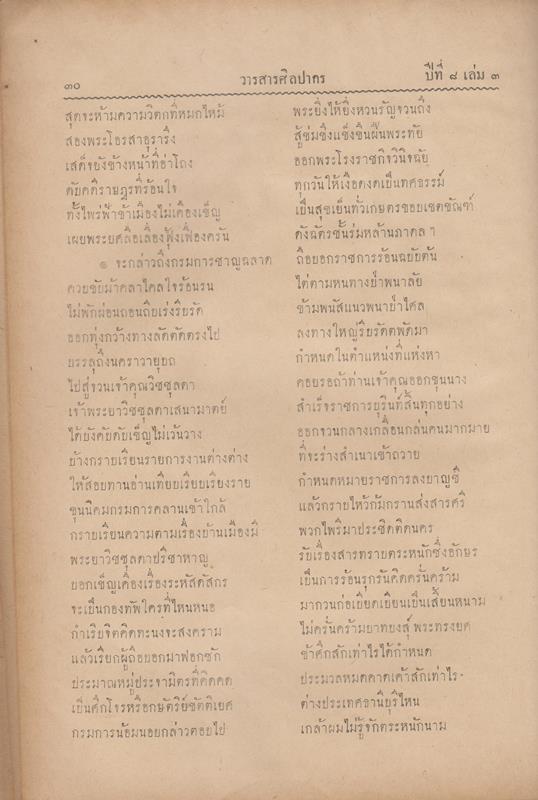 ๓๐ วารสารศิลปากร ปีที่ ๘ เล่ม ๓
สุดจะห้ามความวิตกที่หมกไหม้ พระยิ่งไห้ยิ่งหวนรัญจวนถึง
สองพระโอรสาอุรารึง สู้ข่มขึงแข็งขืนฝืนพระทัย
เสด็จยังข้างหน้าที่อ่าโถง ออกพระโรงราชกิจวินิจฉัย
ดับคดีราษฎรที่ร้อนใจ ทุกวันให้เงือดงดเป็นทศธรรม์
ทั้งไพร่ฟ้าข้าเมืองไม่เคืองเข็ญ เป็นสุขเย็นทั่วเกษตรขอบเขตขัณฑ์
เผยพระยศลือเลื่องฟุ้งเฟื่องครัน ดังฉัตรชั้นร่มหล้านภาดล ฯ
๏ จะกล่าวถึงกรมการชาญฉลาด ถือบอกราชการร้อนฉบับต้น
ควบขับม้าคลาไคลใจร้อนรน ไต่ตามหนทางย่ำพนาลัย
ไม่พักผ่อนถอนถีบเร่งรีบรัด ข้ามพนัสแนวพนาย่ำไศล
ออกทุ่งกว้างทางลัดตัดตรงไป ลงทางใหญ่รีบรัดตพัดมา
บรรลุถึงนคราวายุบถ กำหนดในตำแหน่งที่แห่งหา
ไปสู่จวนเจ้าคุณวิชชุลดา คอยรอถ้าท่านเจ้าคุณออกขุนนาง
เจ้าพระยาวิชชุลดาเสนามาตย์ สำเร็จราชการยุรินท์สิ้นทุกอย่าง
ได้บังคับคับเข็ญไม่เว้นวาง ออกจวนกลางเกลื่อนกล่นคนมากมาย
บ้างกราบเรียนรายการงานต่างต่าง ที่จะร่างสำเนาเข้าถวาย
ให้สอบทานอ่านเทียบเรียบเรียงราย กำหนดหมายราชการลงบาญชี
ขุนนิคมกรมการคลานเข้าใกล้ แล้วกราบไหว้ก้มกรานส่งสารศรี
กราบเรียนความตามเรื่องบ้านเมืองมี พวกไพรีมาประชิดติดนคร
พระยาวิชชุลดาปรีชาหาญ รับเรื่องสารทราบตระหนักซึ่งอักษร
บอกเข็ญเคืองเรื่องระหัสดัสกร เป็นการร้อนรุกรันคิดครั่นคร้าม
จะเป็นกองทัพใครที่ไหนหนอ มากวนก่อเบียดเบียนเป็นเสี้ยนหนาม
กำเริบจิตคิดทะนงจะสงคราม ไม่ครั่นคร้ามบาทบงสุ์พระทรงยศ
แล้วเรียกผู้ถือบอกมาฟอกซัก ข้าศึกสักเท่าไรได้กำหนด
ประมาณหมู่ประจามิตรที่คิดคด ประมวลหมดคาดเค้าสักเท่าไร
เป็นศึกโจรหรือกษัตริย์ขัตติเยศ ต่างประเทศธานีบุรีไหน
กรมการน้อมนอบกล่าวตอบไป เกล้าผมไม่รู้จักตระหนักนาม